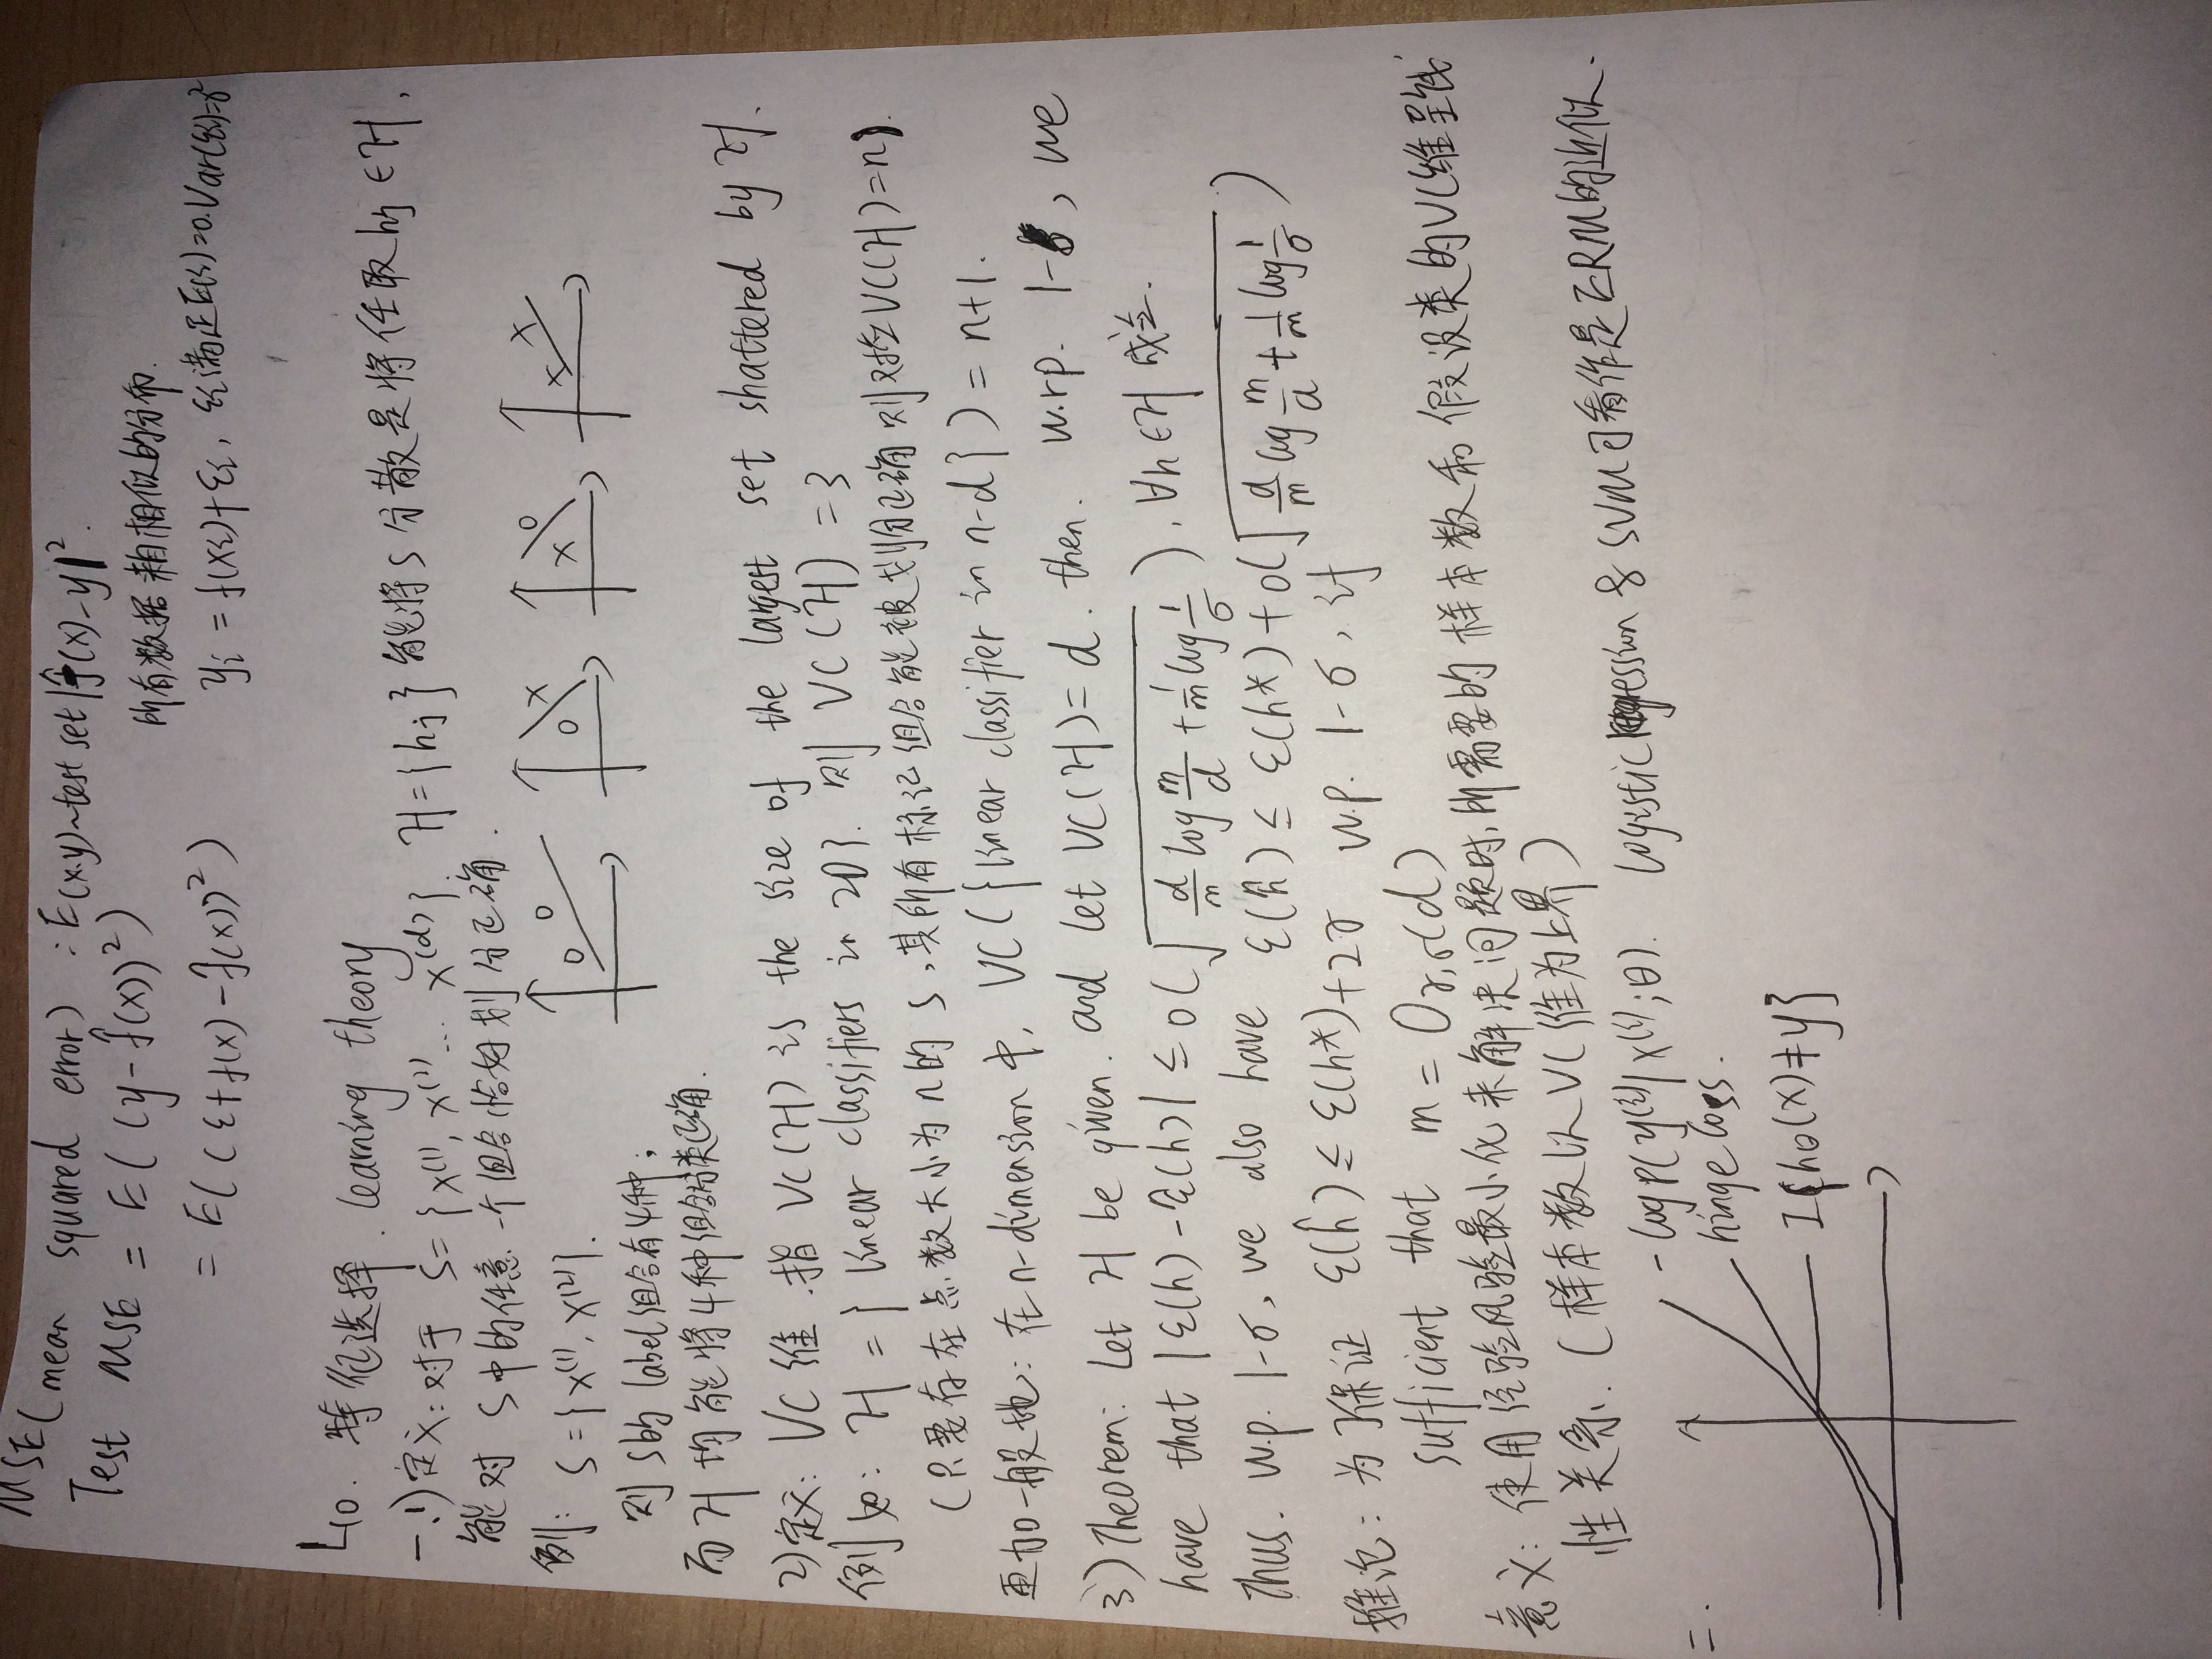 MSE(mean squared error) : E(x.y)~test set|f̂(x)-y|².
Test MSE = E((y-f̂(x))²)
所有数据来自相似的分布.
= E((ε+f(x)-f̂(x))²)
yᵢ = f(xᵢ)+εᵢ, εᵢ满足E(εᵢ)=0.Var(εᵢ)=σ²
L10. 特征选择. learning theory
一.1)定义:对于 S={x⁽¹⁾, x⁽²⁾... x⁽ᵈ⁾}. H={hj}能将S分散是将任取hj∈H,
能对 S中的任意一个组合恰好划分正确.
例: S={x⁽¹⁾, x⁽²⁾}.
则 S的 label组合有4种;
而H 均能将4种组合分类正确.
2)定义: VC 维.指 VC(H) is the size of the largest set shattered by H.
例如: H = { linear classifiers in 2D}. 则 VC(H) = 3
(只要存在点数大小为n的 S,其所有标记组合能被划分正确则对应VC(H)=n).
更加一般地:在n-dimension中, VC({linear classifier in n-d}) = n+1.
3)Theorem: Let H be given. and let VC(H)= d. then. w.rp. 1-δ, we
have that |ε(h)-ε̂(h)| ≤ O(√(d/m log m/d + 1/m log 1/σ)), ∀h∈H 成立.
Thus. w.p. 1-σ, we also have ε(ĥ) ≤ ε(h*)+O(√(d/m log m/d + 1/m log 1/σ))
推论: 为了保证 ε(ĥ) ≤ ε(h*)+2γ w.p. 1-σ, if
sufficient that m = Oγ,σ(d)
意义: 使用经验风险最小化来解决问题时,所需要的样本数和假设类的VC维呈线
性关系. (样本数以VC维为上界)
二.
-logP(y⁽ⁱ⁾|x⁽ⁱ⁾;θ). logistic regression & SVM可看作是ERM的近似.
hinge loss.
I{hθ(x)≠y}